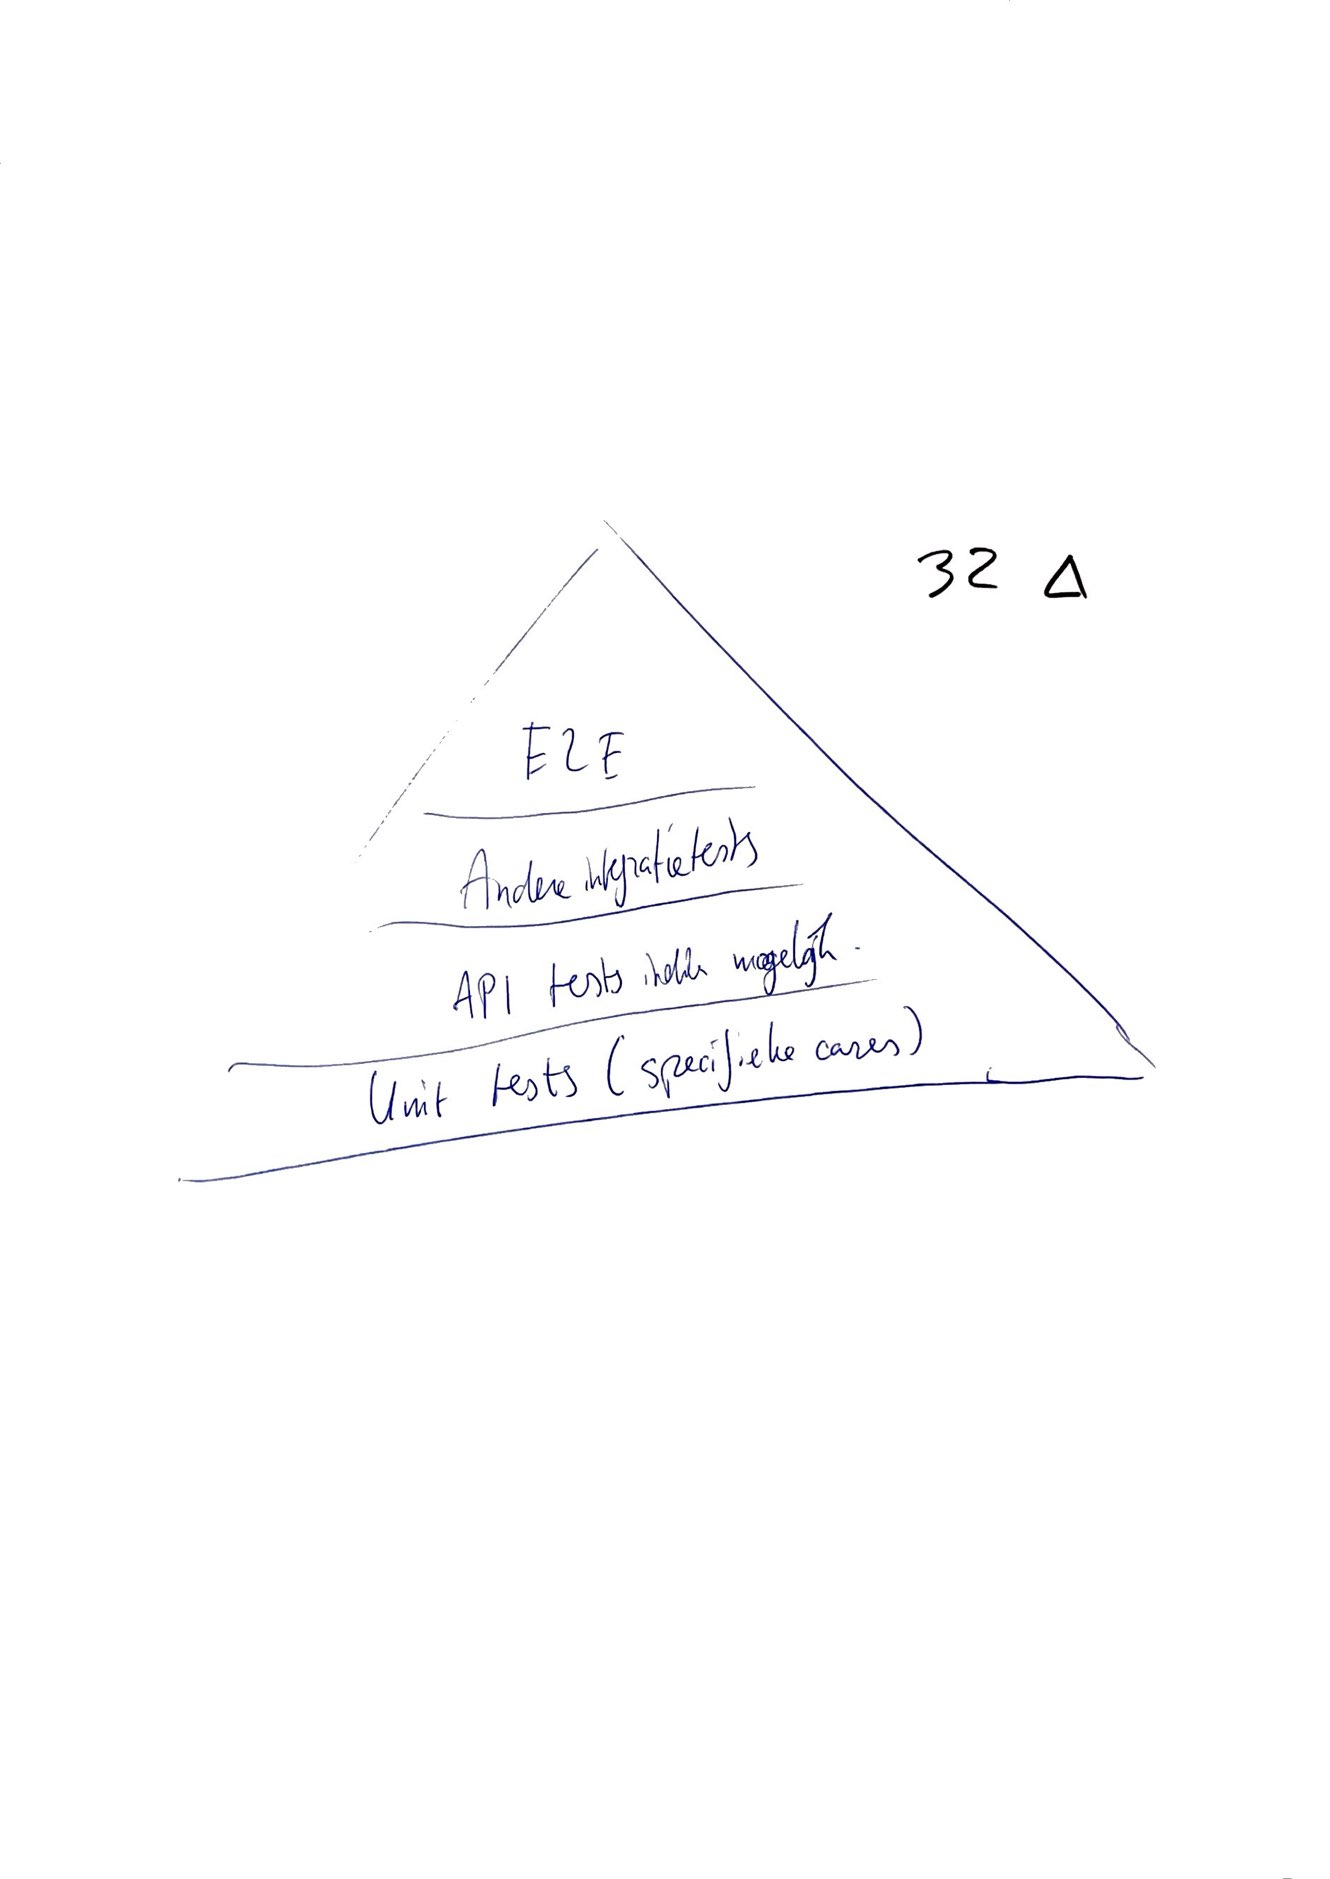 32 Δ
E2E
Andere integratietests
API tests indien mogelijk.
Unit tests (specifieke cases)